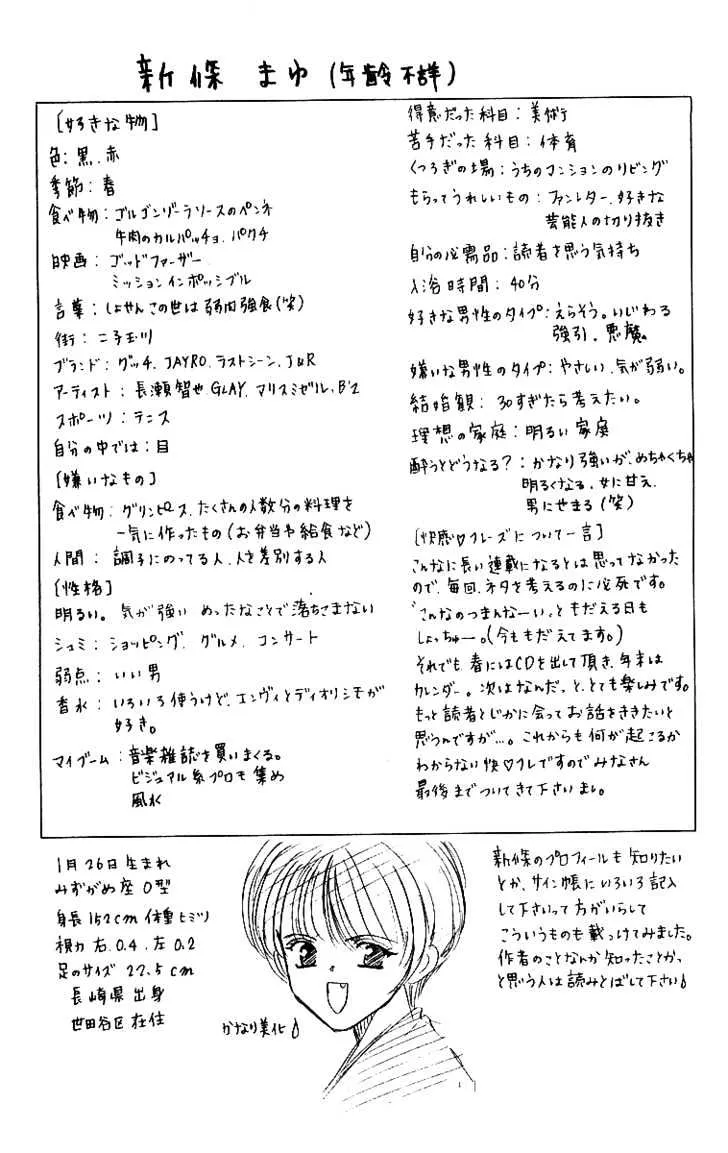 新條 まゆ (年齢不詳)
[好きな物]
色：黒、赤
季節：春
食べ物：ゴルゴンゾーラソースのペンネ
牛肉のカルパッチョ、パクチ
映画：ゴッドファーザー
ミッションインポッシブル
言葉：しょせんこの世は弱肉強食(笑)
街：二子玉川
ブランド：グッチ、JAYRO、ラストシーン、J&R
アーティスト：長瀬智也、GLAY、マリスミゼル、B'z
スポーツ：テニス
自分の中では：目
[嫌いなもの]
食べ物：グリンピース、たくさんの人数分の料理を
一気に作ったもの(お弁当や給食など)
人間：調子にのってる人、人を差別する人
[性格]
明るい。気が強い めったなことで落ちこまない
シュミ：ショッピング、グルメ、コンサート
弱点：いい男
香水：いろいろ使うけど、エンヴィとディオリシモが
好き。
マイブーム：音楽雑誌を買いまくる。
ビジュアル系プロモ集め
風水
得意だった科目：美術
苦手だった科目：体育
くつろぎの場：うちのマンションのリビング
もらってうれしいもの：ファンレター、好きな
芸能人の切り抜き
自分の必需品：読者を思う気持ち
入浴時間：40分
好きな男性のタイプ：えらそう。いじわる
強引、悪魔。
嫌いな男性のタイプ：やさしい、気が弱い。
結婚観：30すぎたら考えたい。
理想の家庭：明るい家庭
酔うとどうなる？：かなり強いが、めちゃくちゃ
明るくなる、女に甘え、
男にせまる(笑)
[快感♡フレーズについて一言]
こんなに長い連載になるとは思ってなかった
ので、毎回、ネタを考えるのに必死です。
「こんなのつまんなーい。」ともだえる日も
しょっちゅー。(今ももだえてます。)
それでも春にはCDを出して頂き、年末は
カレンダー。次はなんだっと、とても楽しみです。
もっと読者とじかに会ってお話をききたいと
思うんですが…。これからも何が起こるか
わからない快♡フレですのでみなさん
最後までついてきて下さいませ。
1月26日生まれ
みずがめ座 O型
身長152cm 体重ヒミツ
視力 右、0.4、左0.2
足のサイズ 22.5cm
長崎県出身
世田谷区在住
かなり美化♪
新條のプロフィールも知りたい
とか、サイン帳にいろいろ記入
して下さいって方がいらして
こういうものも載っけてみました。
作者のことなんか知ったことかっ
と思う人は読みとばして下さい♪